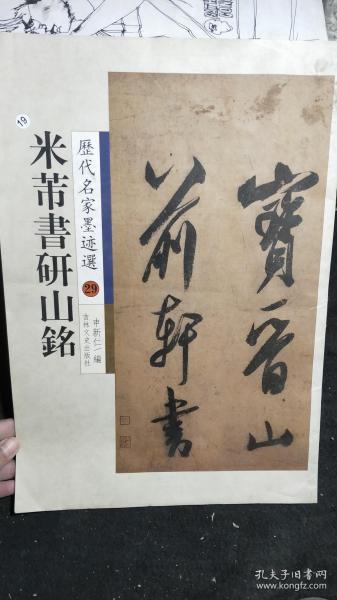 19
歷代名家墨迹選
29
米芾書研山銘
申新仁 編
吉林文史出版社
寶晉山
前軒書
孔夫子旧书网
www.kongfz.com